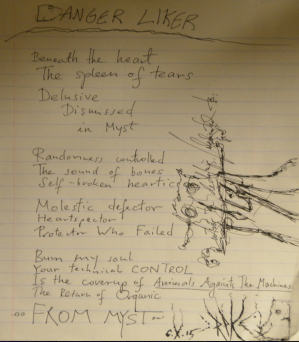 DANGER LIKER
Beneath the heart
The spleen of tears
Delusive
Dismissed
in Myst
Randomness controlled
The sound of bones
Self-broken heartic
Molestic defector
Heartspector
Protector Who Failed
Burn my soul
Your technical CONTROL
Is the coverup of Animals Against The Machines
The Return of Organic
FROM MYST
6.X.15